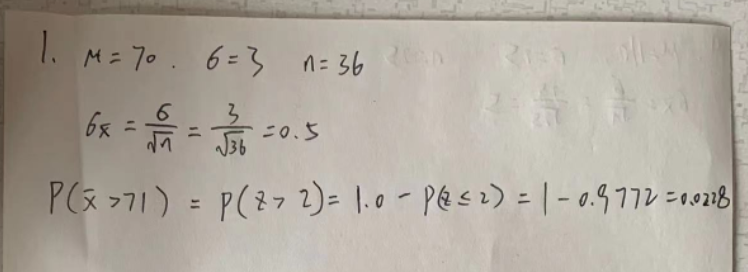 1. μ = 70 . σ = 3 n = 36
σx̄ = σ/√n = 3/√36 = 0.5
P(x̄ > 71) = P(z > 2) = 1.0 - P(z ≤ 2) = 1 - 0.9772 = 0.0228